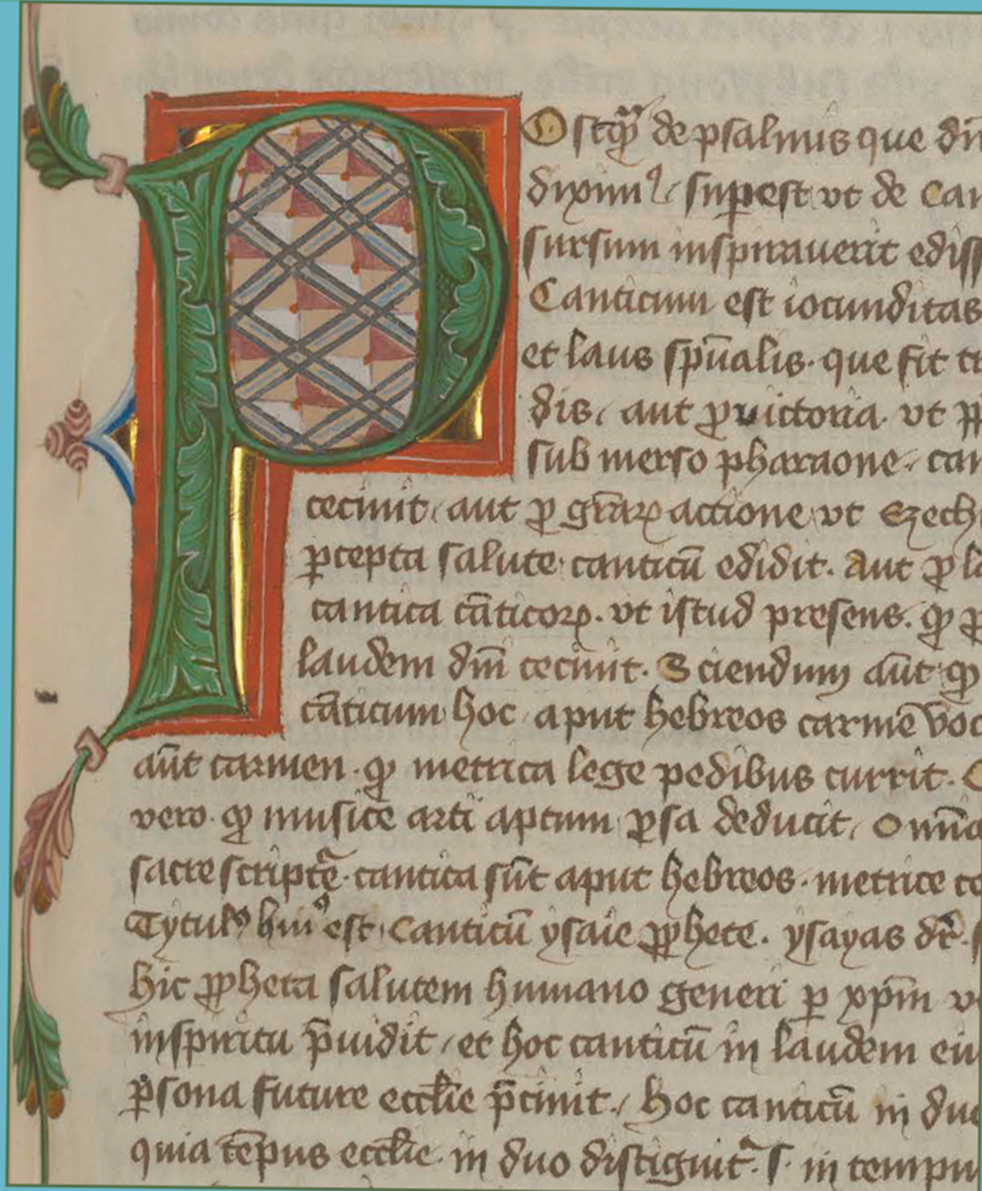 POstqȝ de psalmis que
diximꝰ / supest vt de
sursum inspirauerit
Canticum est iocunditas
et laus spūalis · que fit
dis / aut ꝓ victoria · vt
sub merso pharaone /
cecinit / aut ꝓ grāꝝ actione vt
ꝑcepta salute canticū edidit · aut ꝓ
cantica cāticoꝝ · vt istud presens · ꝙ
laudem dm̄ cecinit · Sciendum aūt ꝙ
cāticum hoc aput hebreos carmē
aūt carmen · ꝙ metrica lege pedibus currit ·
vero · ꝙ musice arti aptum ꝑsa deducit /
sacre scriptē · cantica sūt aput hebreos · metrice
Tytulꝰ huiꝰ est / Canticū ysaie ꝓphete · ysayas dr̄ ·
hic ꝓpheta salutem humano generi ꝑ xp̄m
inspiritu p̄uidit / et hoc canticū in laudem
ꝑsona future ecclīe p̄cinit / hoc canticū in
quia tēpus ecclīe · in duo distīguit · s · in